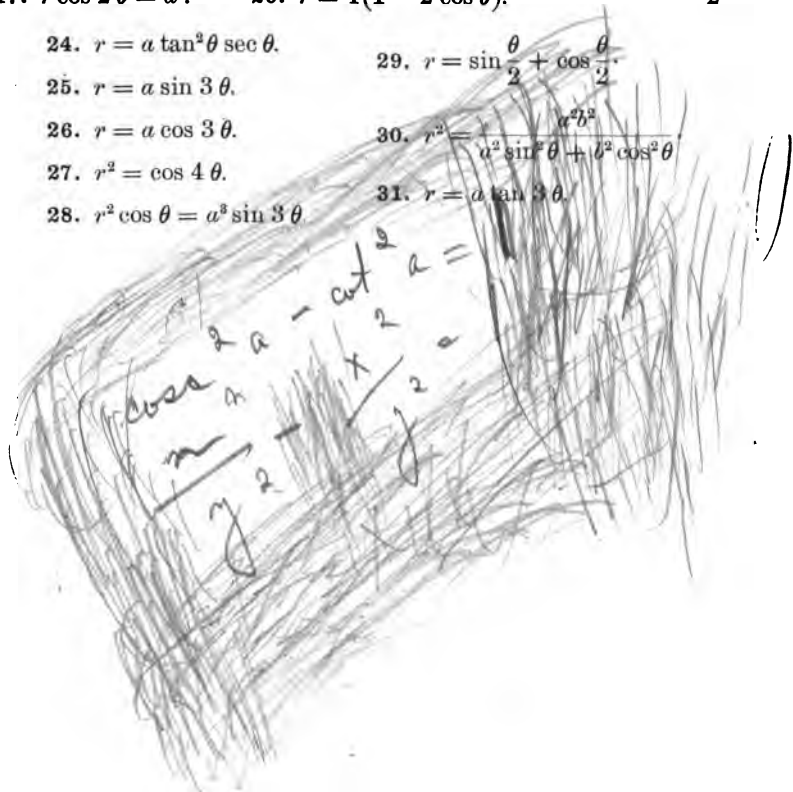 r cos 2θ = a.
24. r = a tan²θ sec θ.
25. r = a sin 3 θ.
26. r = a cos 3 θ.
27. r² = cos 4 θ.
28. r² cos θ = a³ sin 3 θ.
29. r = sin θ/2 + cos θ/2.
30. r² = a²b² / (a² sin² θ + b² cos² θ)
31. r = a tan 3 θ.
- cot² a =
y² - x²/y² =